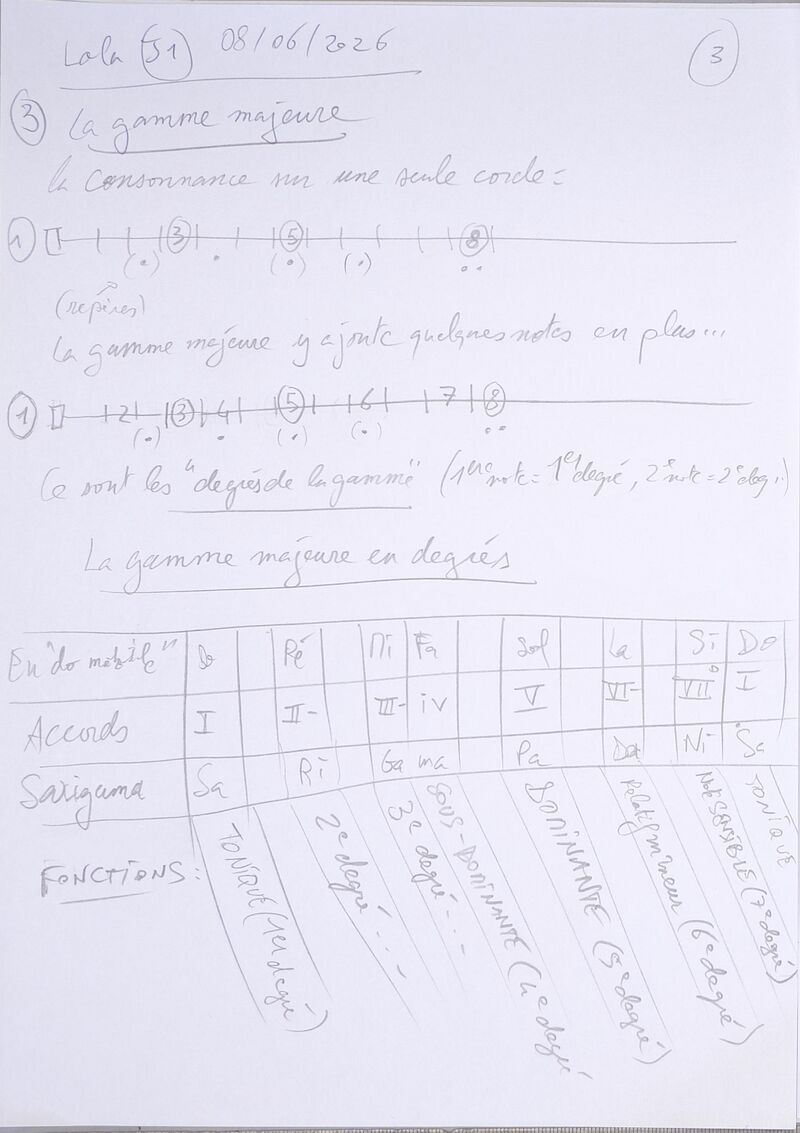 Lola S1 08/06/2026
3
3 La gamme majeure
la consonnance sur une seule corde =
1 3 5 8
(repères)
La gamme majeure y ajoute quelques notes en plus...
1 2 3 4 5 6 7 8
Ce sont les "degrés de la gamme" (1ere note = 1er degré, 2e note = 2e deg..)
La gamme majeure en degrés
En "do mobile" Do Ré Mi Fa Sol La Si Do
Accords I II- III- iv V VI- VII° I
Sarigama Sa Ri Ga ma Pa Da Ni Sa
FONCTIONS :
TONIQUE (1er degré)
2e degré...
3e degré...
SOUS-DOMINANTE (4e degré
DOMINANTE (5e degré)
Relatif mineur (6e degré)
Note SENSIBLE (7e degré)
TONIQUE